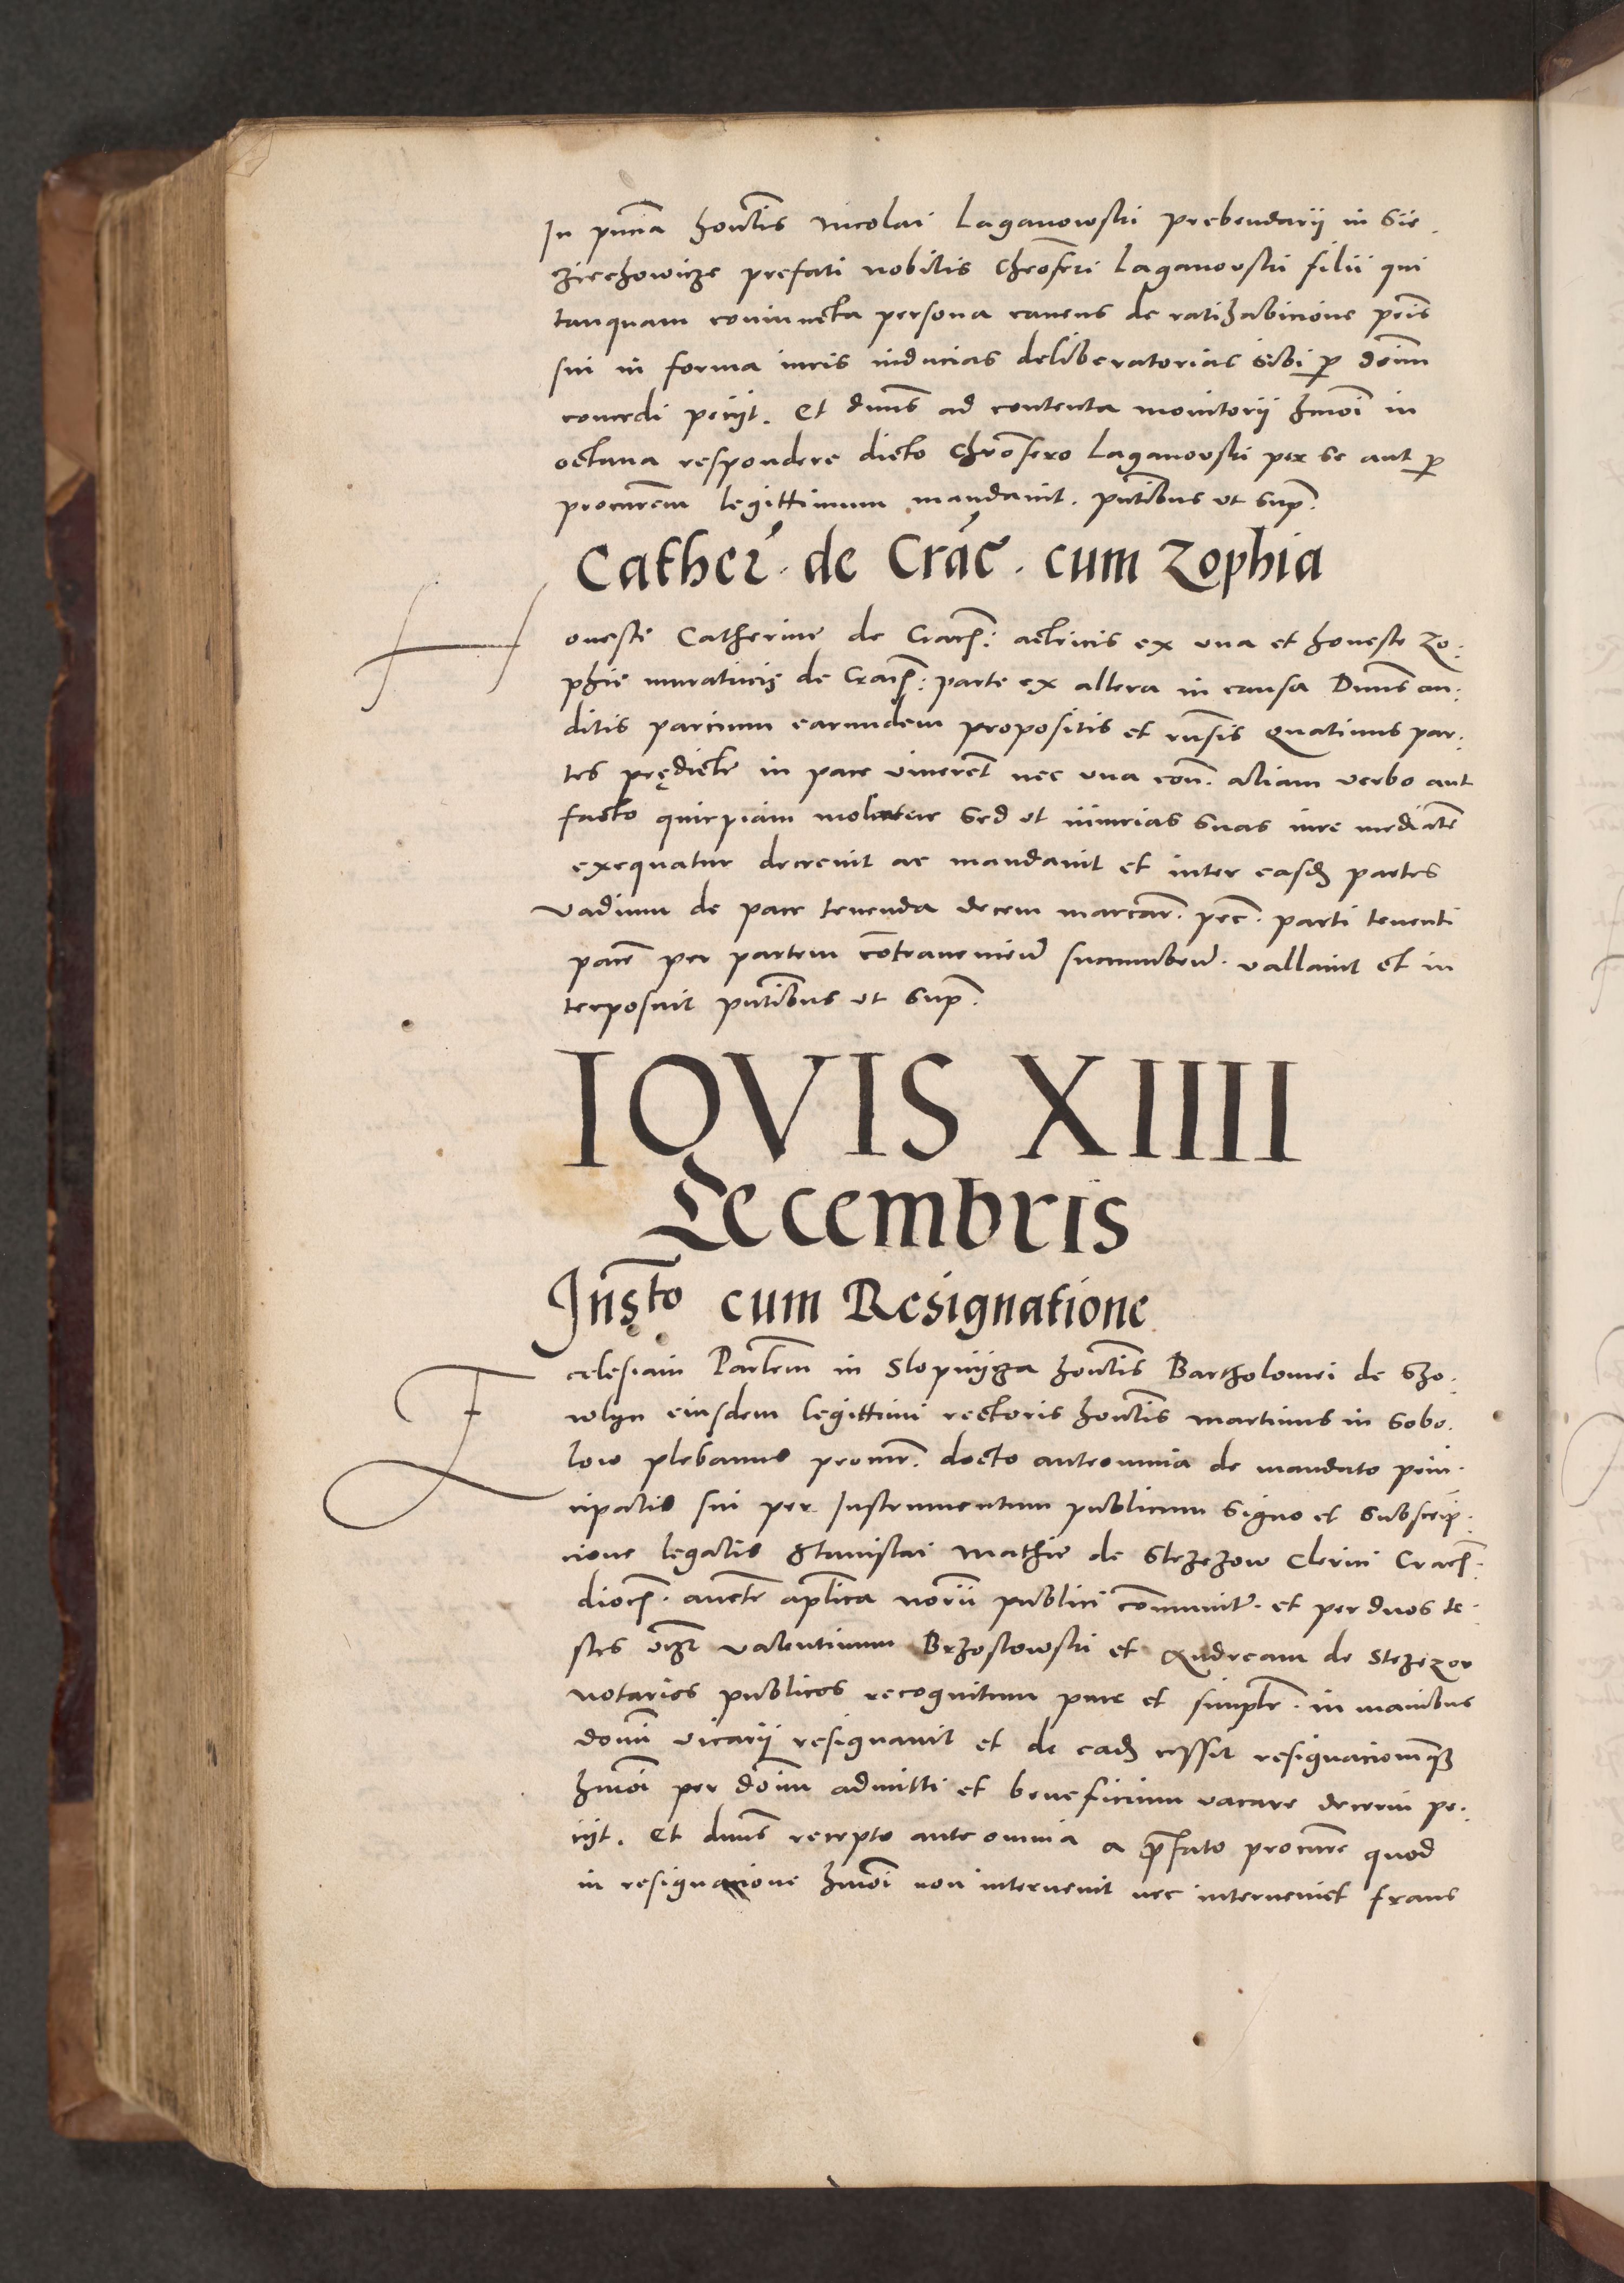 In pn̄cia hon̄tlis Nicolai Laganowski prebendarij in Sie
ziechowicze prefati nobilis Chrōferi Laganovski filii qui
tanquam coniuncta persona cavens de ratihabicione pr̄is
sui in forma iuris inducias deliberatorias sibi ꝑ dōm̄
concedi peciit. Et dn̄us ad contenta monitorij hm̄oi in
octava respondere dicto Chrōfero Laganovski per se aut ꝑ
procur̄em legittimum mandavit. pn̄tibus ut supͣ.
Catherꝰ. de Crac̄. cum Zophia
Honeste Catherine de Crac̄: actricis ex una et honeste Zo:
phie muraticis de Crac̄: parte ex altera in causa Dn̄us au:
ditis parcium earundem propositis et rn̄sis Quatinus par:
tes prędicte in pace viverent nec una con̄. aliam verbo aut
facto quicpiam molestare Sed ut iniurias suas iure mediāte
exequatur decrevit ac mandavit et inter easdꝫ partes
vadium de pace tenenda decem marcar̄. pec̄. parti tenenti
pacē per partem cōtravenien̄. succumben̄. vallavit et in
terposuit pn̄tibus ut supͣ.
IOVIS XIIII
Decembris
Jns̄to cum Resignatione
Ecclesiam Par̄lem in Slopnijcza hon̄lis Bartholomei de Szo:
wlyn eiusdem legittimi rectoris hon̄lis Martinus in Sobo:
low plebanus procur̄. docto anteomnia de mandato prin:
cipalis sui per Instrumentum publicum signo et subscrip:
cione legalis Stanislai Mathie de Strzezow Clerici Crac̄:
dioc̄. auct̄e aplīca nōrii publici cōmunit̄. et per duos te:
stes vꝫ Valentinum Brzostowski et Andream de Strzezow
notarios publicos recognitum pure et simplr̄. in manibus
domi̅ vicarij resignavit et de eadꝫ cessit resignacionemqꝫ
hm̄oi per dōm̄ admitti et beneficium vacare decerni pe:
ciit. Et dn̄us recepto ante omnia a p̄fato procur̄e quod
in resignacione hm̄oi non intervenit nec interveniet fraus